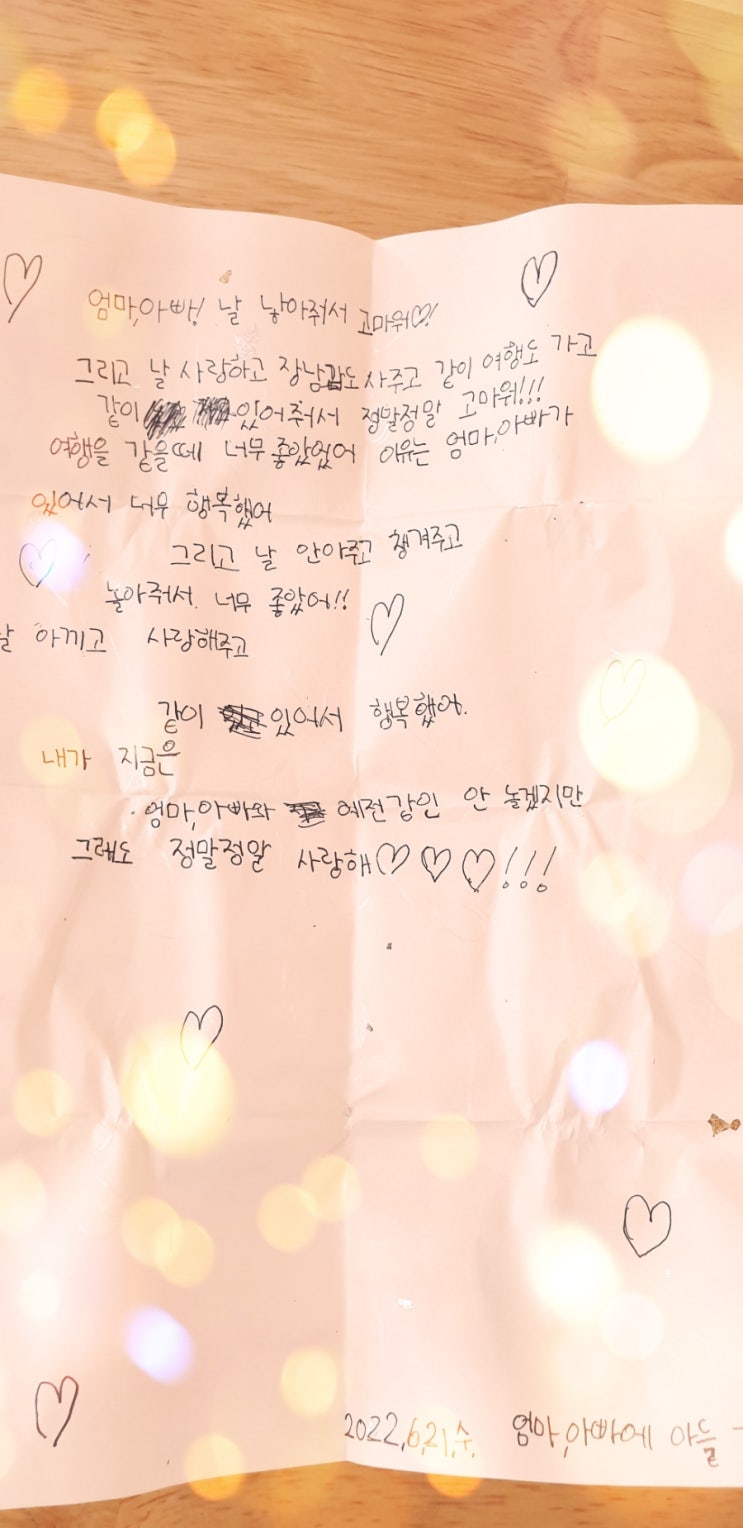 엄마,아빠! 날 낳아줘서 고마워♡!
그리고 날 사랑하고 장남감도 사주고 같이 여행도 가고
같이 있어줘서 정말정말 고마워!!!
여행을 같을떼 너무 좋았었어 이유는 엄마,아빠가
있어서 너무 행복했어
그리고 날 안아주고 챙겨주고
놀아줘서. 너무 좋았어!!
날 아끼고 사랑해주고
같이 있어서 행복했어.
내가 지금은
엄마,아빠와 예전강인 안 놀겠지만
그레도 정말정말 사랑해♡♡♡!!!
2022,6,21,수, 엄마,아빠에 아들